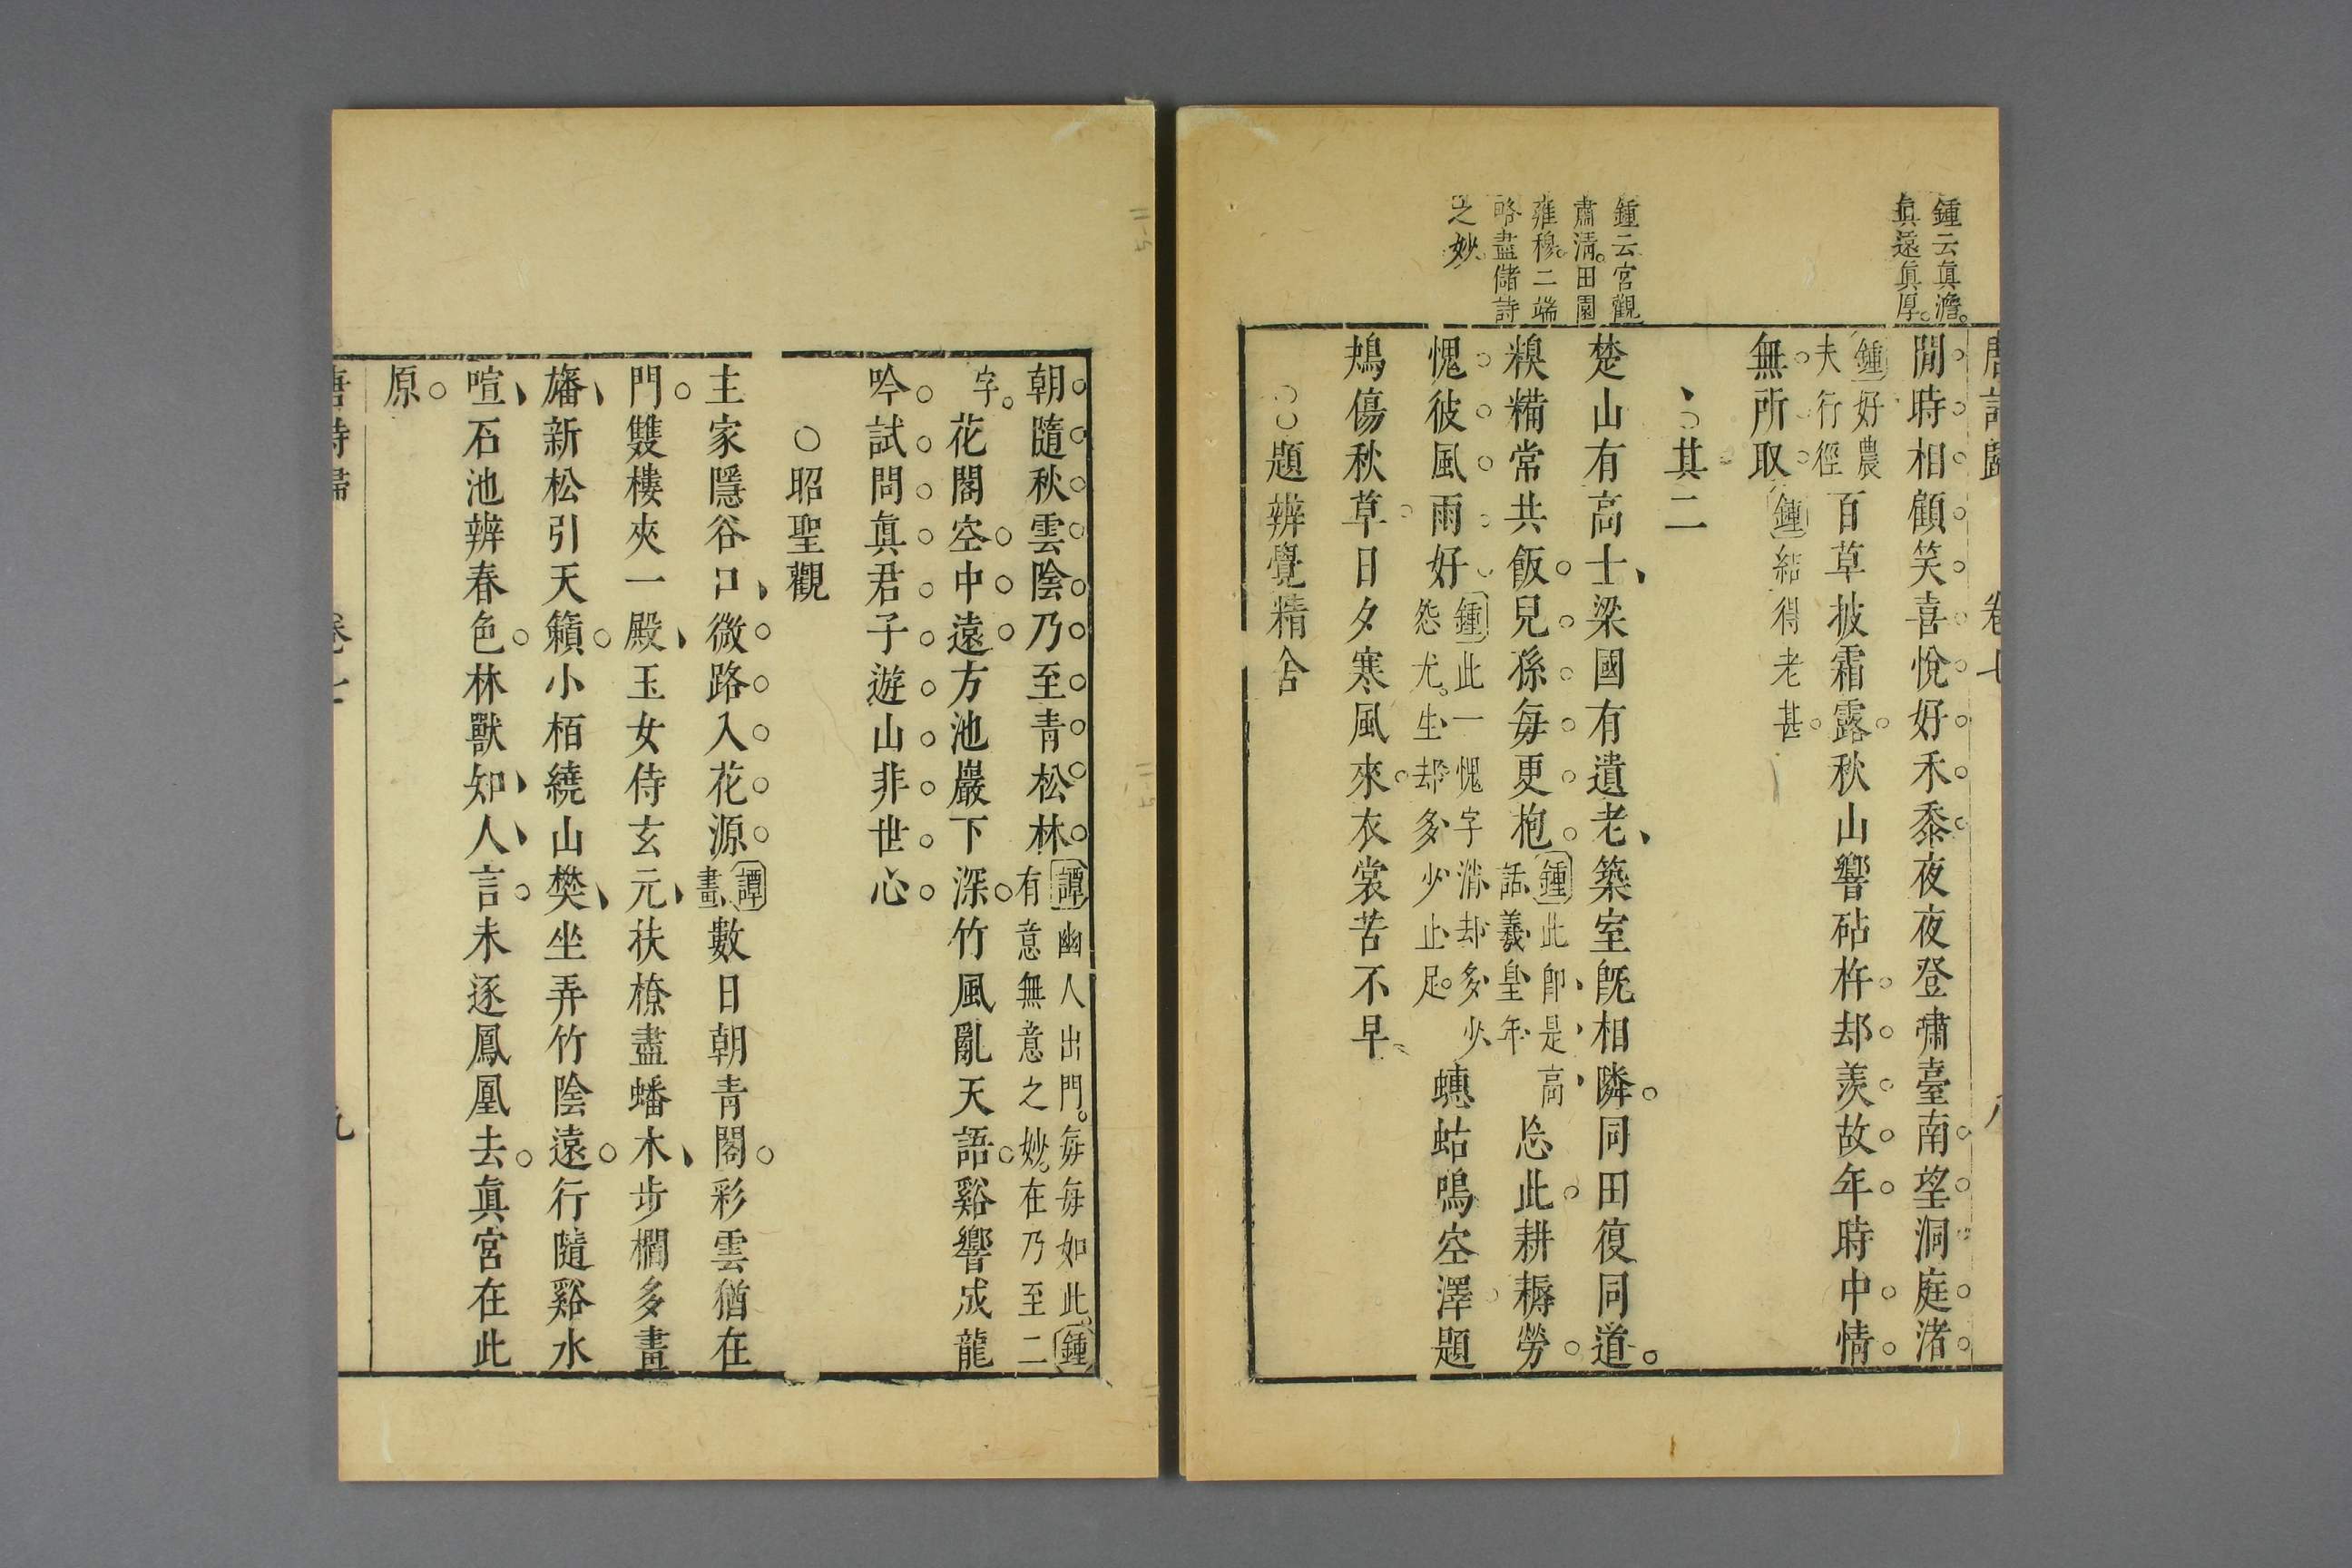 唐詩歸　卷七　八
鍾云真澹
真遠真厚
閒時相顧笑喜悅好禾黍夜夜登嘯臺南望洞庭渚
鍾好農
夫行徑
百草披霜露秋山響砧杵却羨故年時中情
無所取
鍾結得老甚
其二
鍾云宮觀
肅清田園
雍穆二端
略盡儲詩
之妙
楚山有高士梁國有遺老築室旣相隣同田復同道
糗糒常共飯兒孫每更抱
鍾此卽是高
話羲皇年
忩此耕耨勞
愧彼風雨好
鍾此一愧字消却多少
怨尤生却多少止足
蟪蛄鳴空澤題
鴂傷秋草日夕寒風來衣裳苦不早
題辨覺精舍
朝隨秋雲陰乃至青松林
譚幽人出門每每如此鍾
有意無意之妙在乃至二
字
花閣空中遠方池巖下深竹風亂天語谿響成龍
吟試問真君子遊山非世心
○昭聖觀
主家隱谷口微路入花源
譚
畫
數日朝青閣彩雲猶在
門雙樓夾一殿玉女侍玄元扶橑盡蟠木步櫩多畫
旛新松引天籟小栢繞山樊坐弄竹陰遠行隨谿水
喧石池辨春色林獸知人言未逐鳳凰去真宮在此
原
唐詩歸　卷七　九